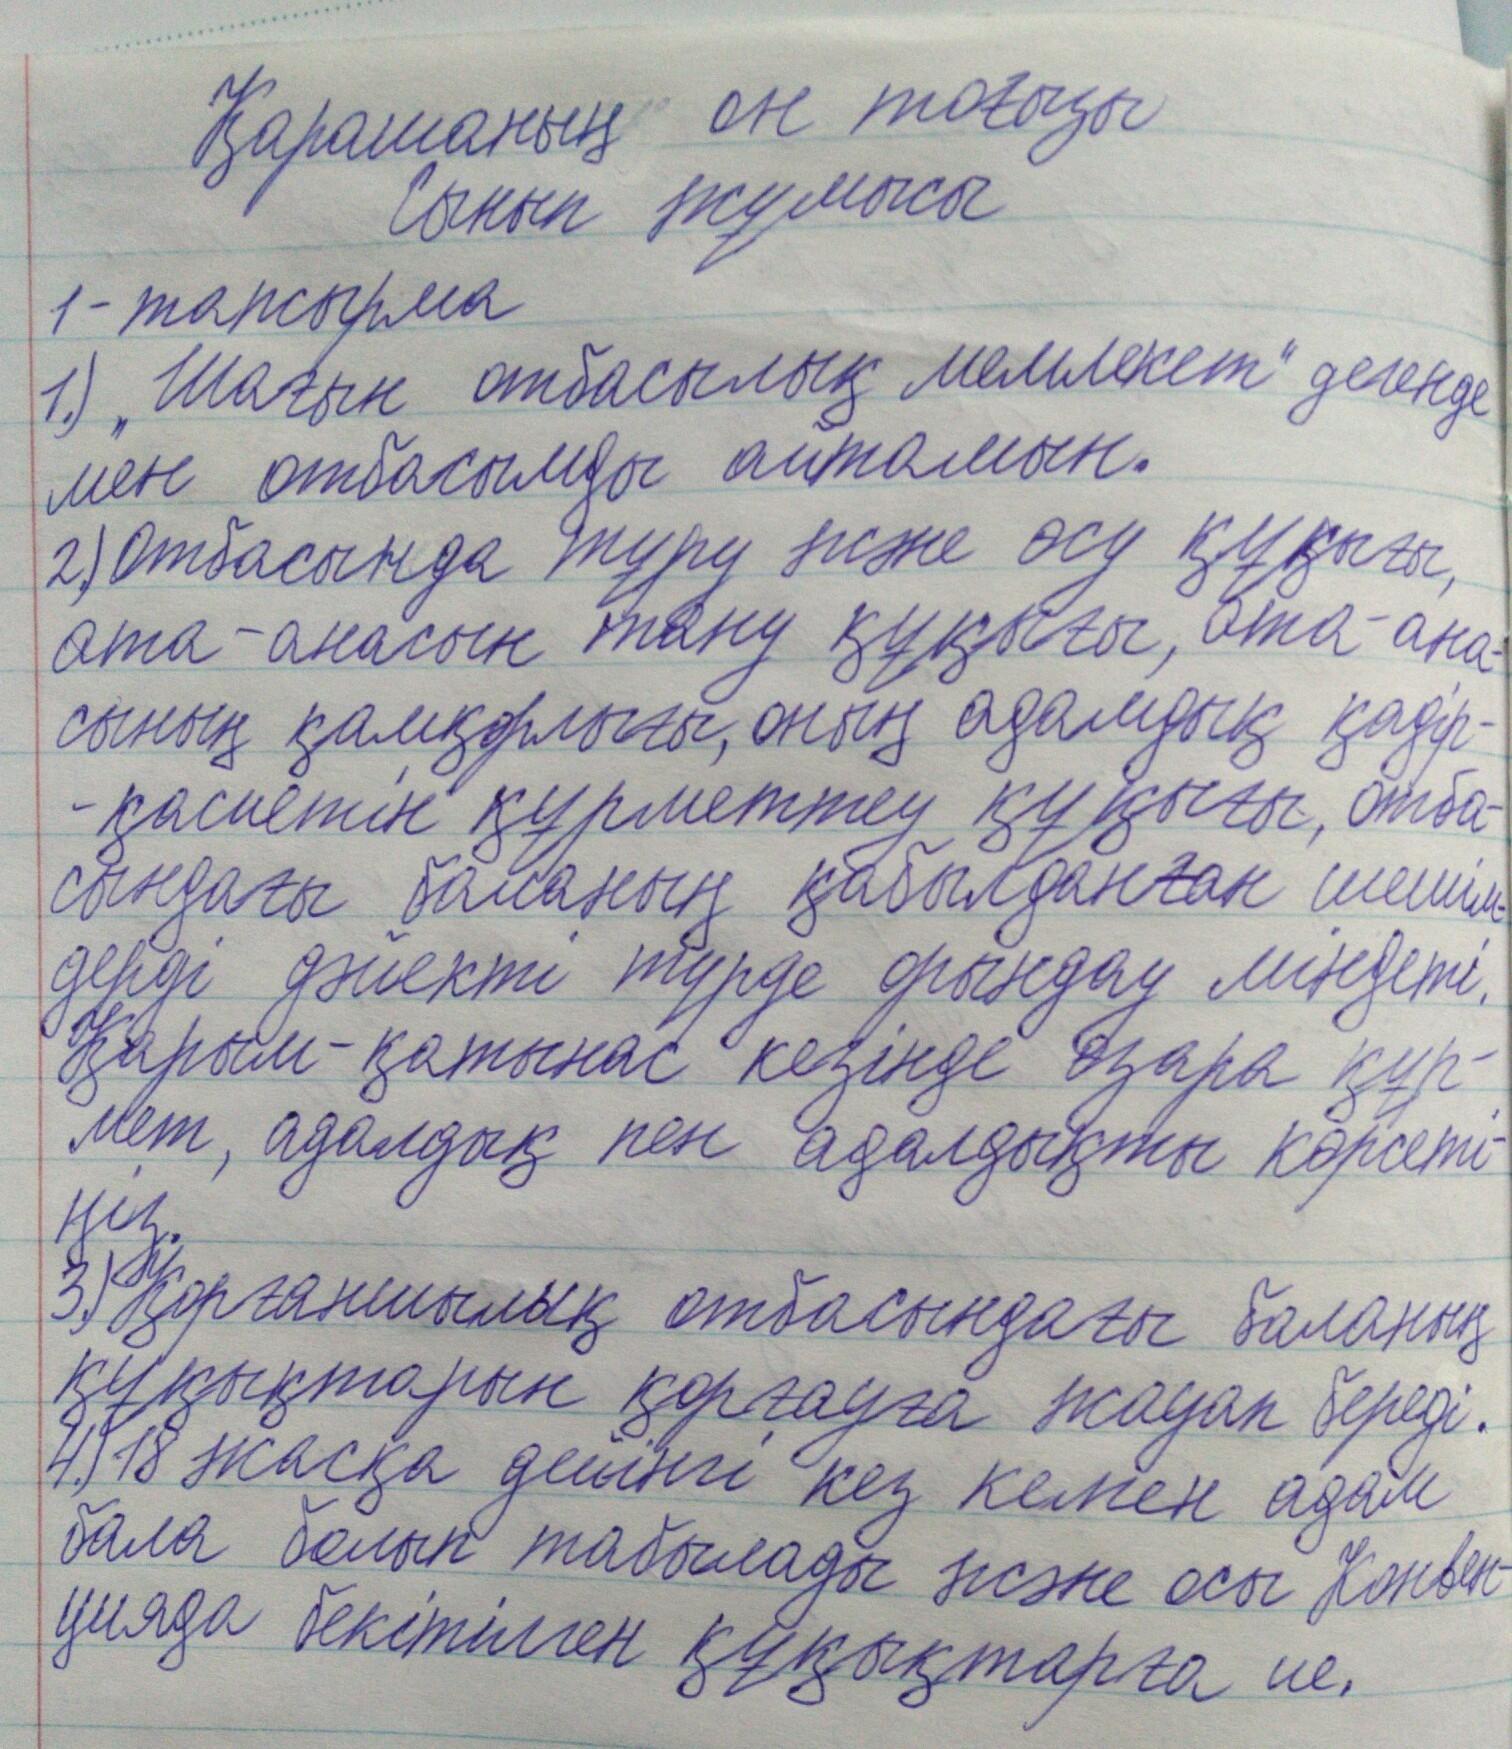 Қарашаның он тоғызы
Сынып жұмысы
1-тапсырма
1.) „Шағын отбасылық мемлекет" дегенде
мен отбасымды айтамын.
2.) Отбасында тұру және өсу құқығы,
ата-анасын тану құқығы, ата-ана-
сының қамқорлығы, оның адамдық қадір-
-қасиетін құрметтеу құқығы, отба-
сындағы баланың қабылданған шешім-
дерді дәйекті түрде орындау міндеті.
Қарым-қатынас кезінде өзара құр-
мет, адалдық пен адалдықты көрсеті-
ңіз.
3.) Қорғаншылық отбасындағы баланың
құқықтарын қорғауға жауап береді.
4.) 18 жасқа дейінгі кез келген адам
бала болып табылады және осы Конвен-
цияда бекітілген құқықтарға ие.